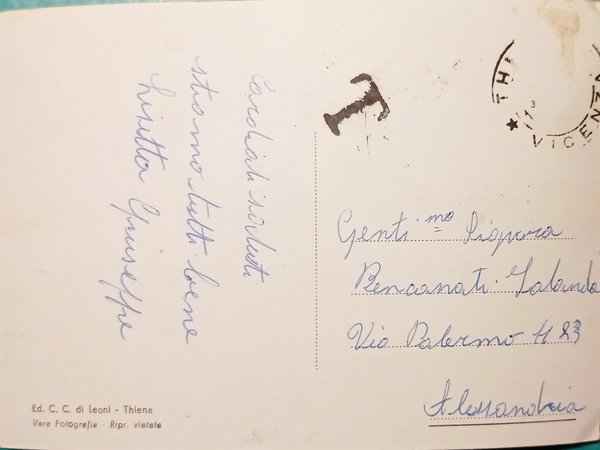 Cordiali saluti
stiamo tutti bene
Lisetta Giuseppe
T
TH
VICENZA
3
Genti.mo Signora
Bencanati Jolanda
Via Palermo N 23
Alessandria
Ed. C. C. di Leoni - Thiene
Vera Fotografia - Ripr. vietata